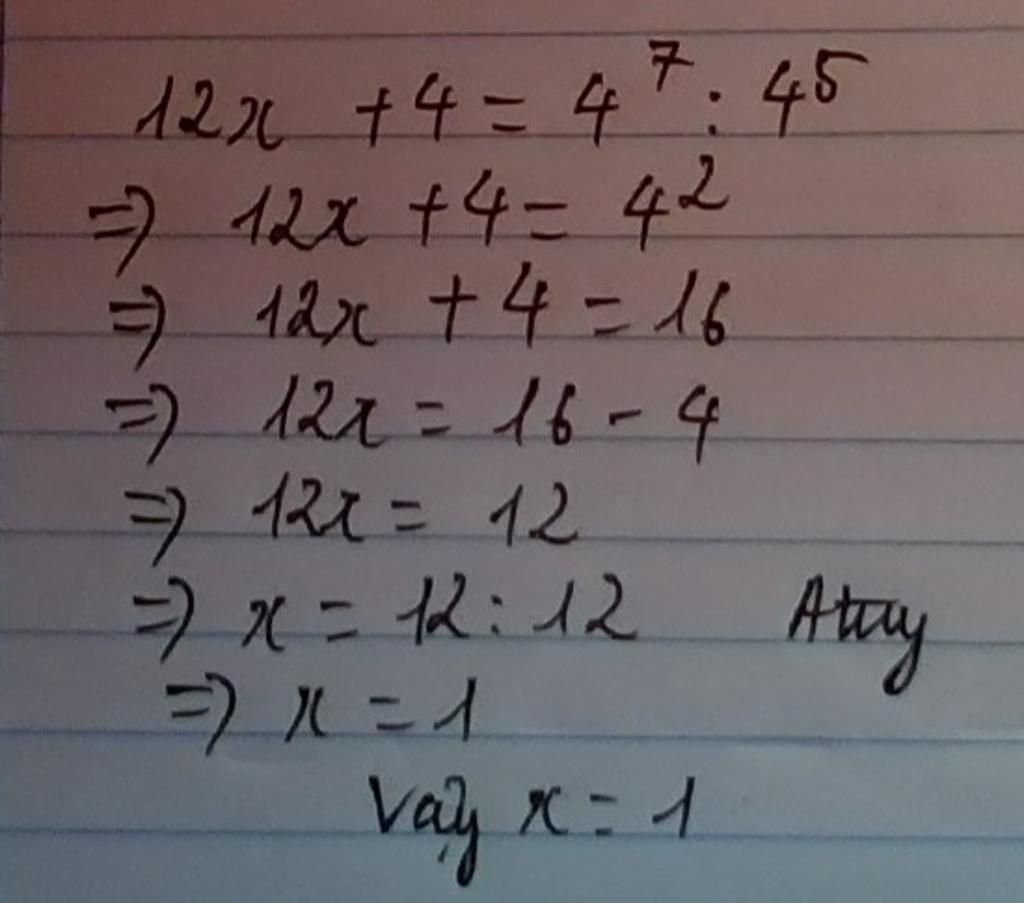 12x + 4 = 4⁷ : 4⁵
⇒ 12x + 4 = 4²
⇒ 12x + 4 = 16
⇒ 12x = 16 - 4
⇒ 12x = 12
⇒ x = 12 : 12
⇒ x = 1
Vậy x = 1